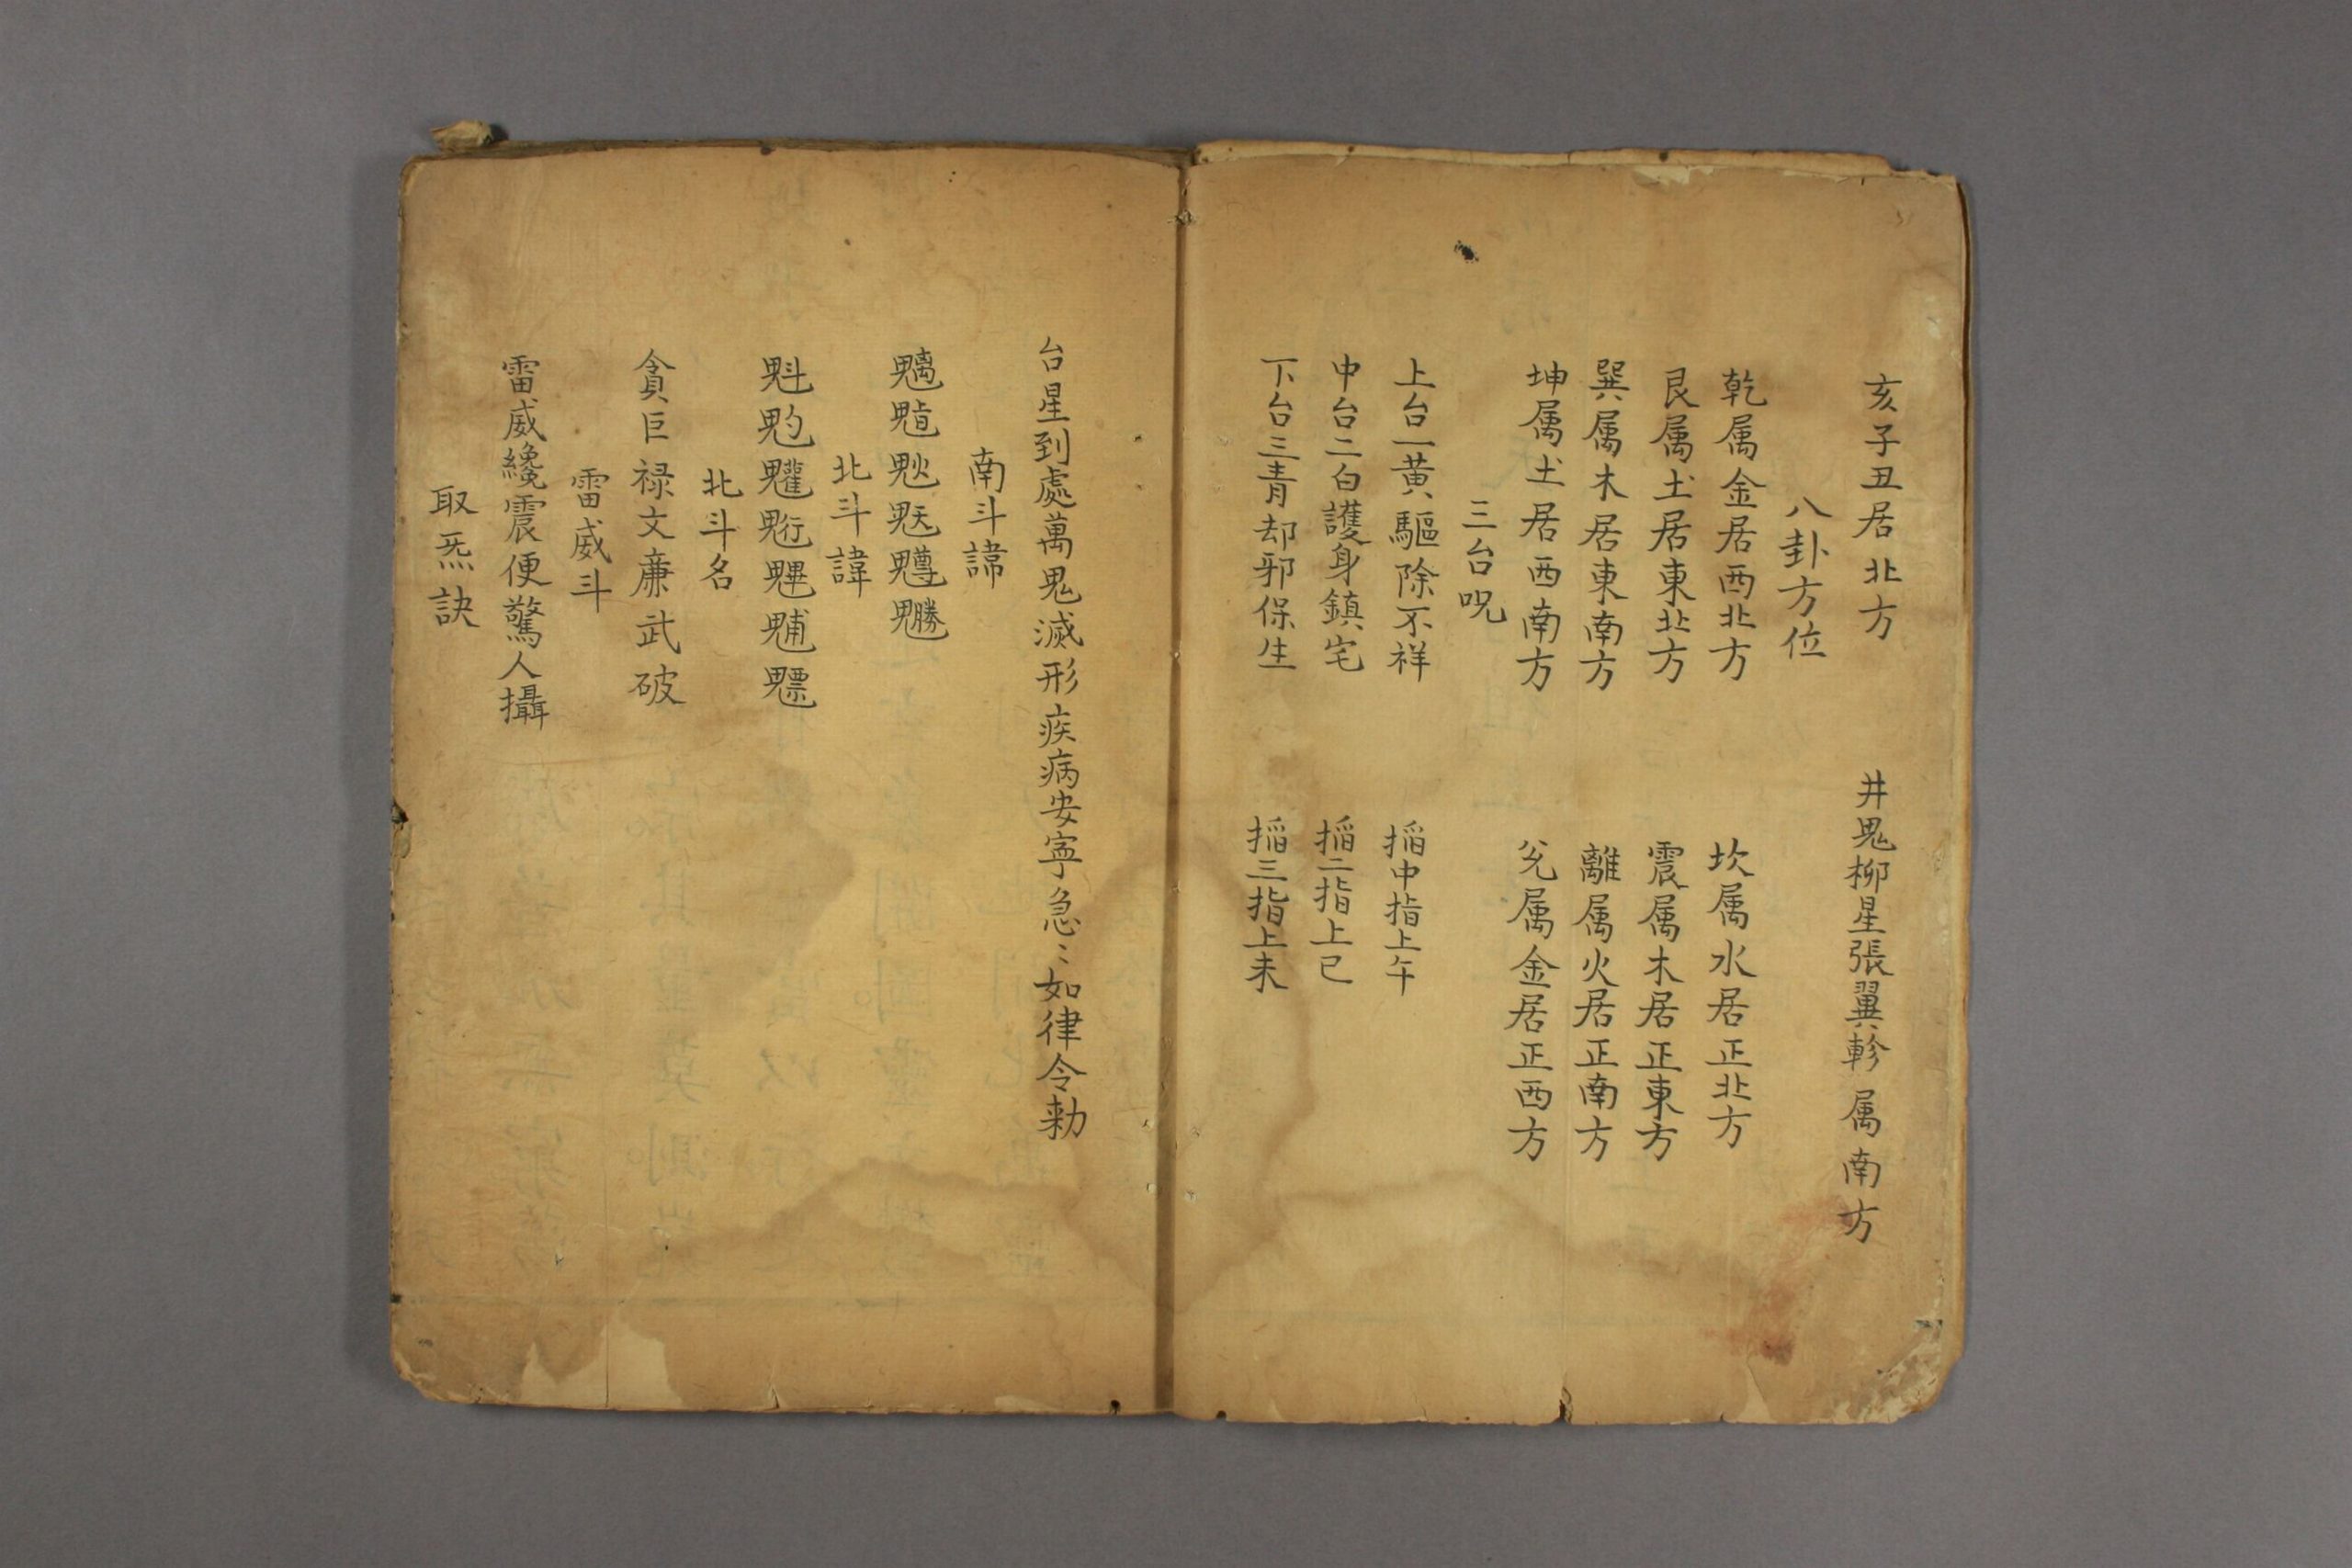 亥子丑居北方　井鬼柳星張翼軫属南方
八卦方位
乾属金居西北方　坎属水居正北方
艮属土居東北方　震属木居正東方
巽属木居東南方　離属火居正南方
坤属土居西南方　兊属金居正西方
三台呪
上台一黄驅除不祥　搯中指上午
中台二白護身鎮宅　搯二指上巳
下台三青却邪保生　搯三指上未
台星到處萬鬼滅形疾病安寧急〻如律令勑
南斗諱
北斗諱
魁䰢魓
北斗名
貪巨禄文亷武破
雷威斗
雷威纔震便驚人攝
取炁訣